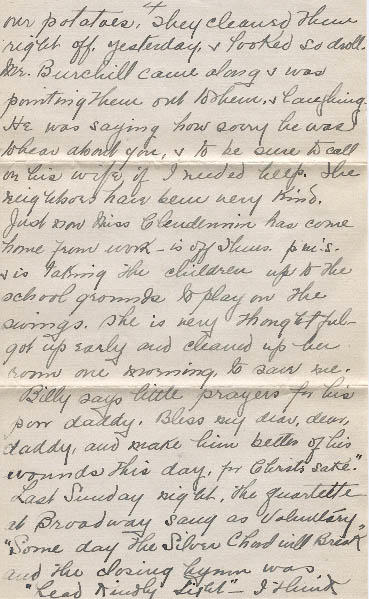 4
our potatoes. They cleaned them
right off, yesterday, & looked so droll.
Mr. Burchill came along & was
pointing them out to them, & laughing.
He was saying how sorry he was
to hear about you, & to be sure to call
on his wife if I needed help. The
neighbors have been very kind.
Just now Miss Clendennin has come
home from work - is off Thurs. p.m's.
& is taking the children up to the
school grounds to play on the
swings. She is very thoughtful -
got up early and cleaned up her
room one morning, to save me.
Billy says little prayers for his
poor daddy. Bless my dear, dear,
daddy, and make him better of his
wounds this day, for Christ's sake."
Last Sunday night, the quartette
at Broadway sang as Voluntary
"Some day the Silver Chord will Break"
and the closing hymn was
"Lead Kindly Light" - I think